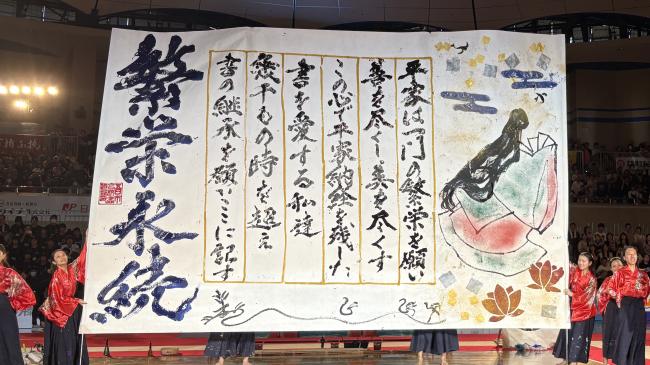 平家は一門の繁栄を願い
善を尽し美を尽くす
この心で平家納経を残した
書を愛する私達
幾千もの時を超え
書の継承を願いここに記す
繁栄永続